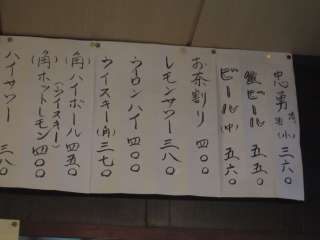 忠勇(小)三六〇
生ビール 五五〇
ビール(中)五六〇
お茶割り 四〇〇
レモンサワー 三八〇
ウーロンハイ 四〇〇
ウイスキー(角)三七〇
角ハイボール 四五〇
(ウイスキー)
角ホットレモン 四〇〇
ハイサワー 三八〇